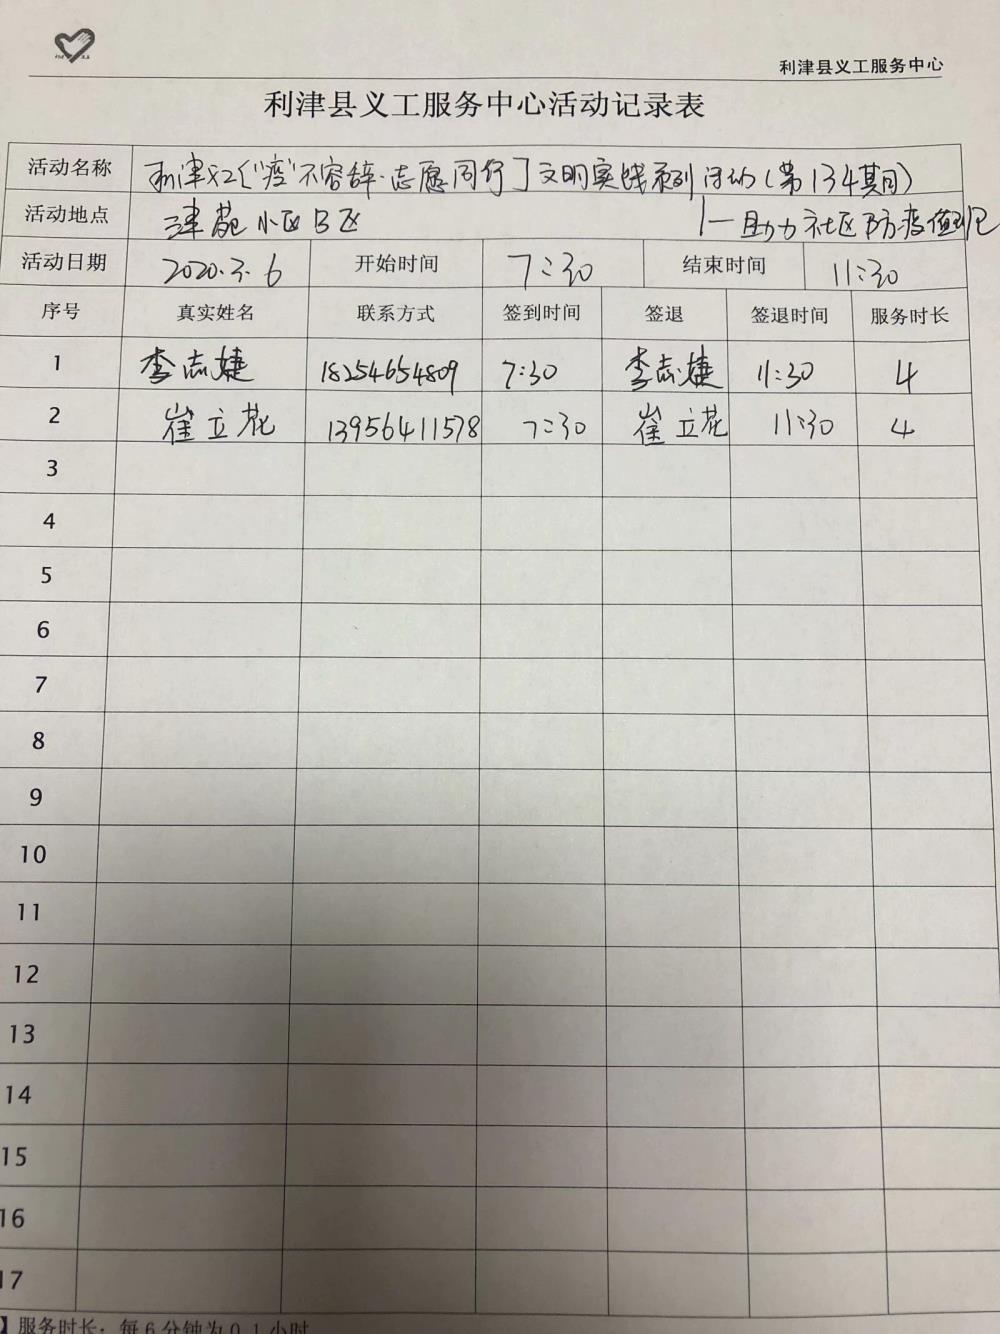 利津县义工服务中心
利津县义工服务中心活动记录表
活动名称 利津义工〔"疫"不容辞·志愿同行〕文明实践系列活动(第134期)
活动地点 津苑小区B区 —助力社区防疫值班
活动日期 2020.3.6 开始时间 7:30 结束时间 11:30
序号 真实姓名 联系方式 签到时间 签退 签退时间 服务时长
1 李志婕 18254654809 7:30 李志婕 11:30 4
2 崔立花 13956411578 7:30 崔立花 11:30 4
3
4
5
6
7
8
9
10
11
12
13
14
15
16
17
】服务时长:每6分钟为0.1小时